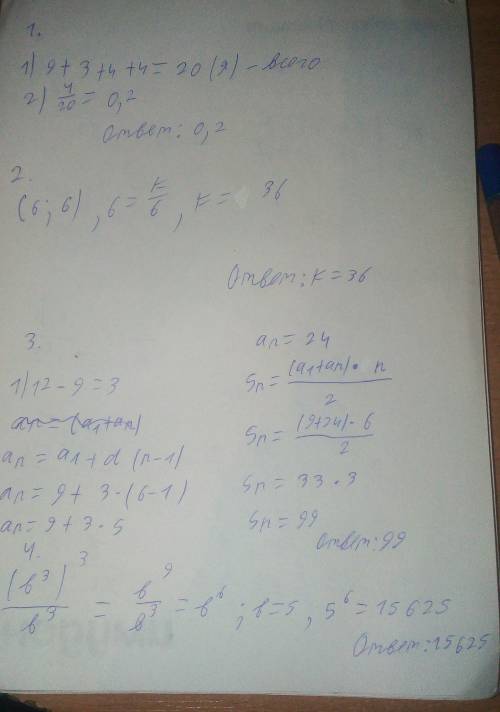 1.
1) 9 + 3 + 4 + 4 = 20 (9) - всего
2) 4/20 = 0,2
Ответ: 0,2
2.
(6; 6), 6 = k/6, k = 36
Ответ: k = 36
3.
1) 12 - 9 = 3
an = (a1 + an)
an = a1 + d (n - 1)
an = 9 + 3 · (6 - 1)
an = 9 + 3 · 5
an = 24
Sn = (a1 + an) · n / 2
Sn = (9 + 24) · 6 / 2
Sn = 33 · 3
Sn = 99
Ответ: 99
4.
(b³)³ / b³ = b⁹ / b³ = b⁶; b = 5, 5⁶ = 15625
Ответ: 15625